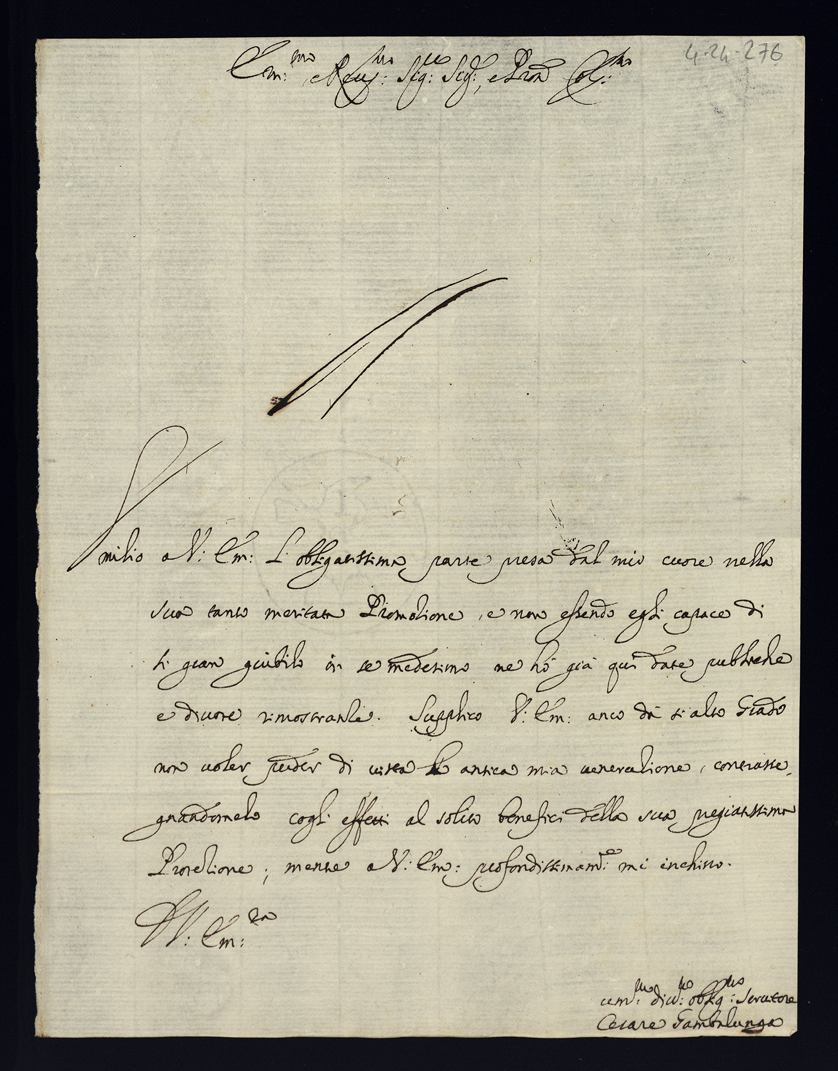 4-24-276
Em:mo e Reu:mo Sig:re Sig:re, e Pron Col:mo
Umilio a V: Em: l'obligatissima parte presa dal mio cuore nella
sua tanto meritata Promotione, e non essendo egli capace di
si gran giubilo in se medesimo ne hò già qui date publiche
e diuote rimostranze. Supplico V: Em: anco da si alto Grado
non uoler perder di uista la antica mia ueneratione, contrasse,
gnandomelo cogli effetti al solito benefici della sua pregiatissima
Protetione; mentre a V: Em: profondissimam:e mi inchino.
D V: Em:za
um:mo diu:mo oblig:mo Seruitore
Cesare Gambalunga